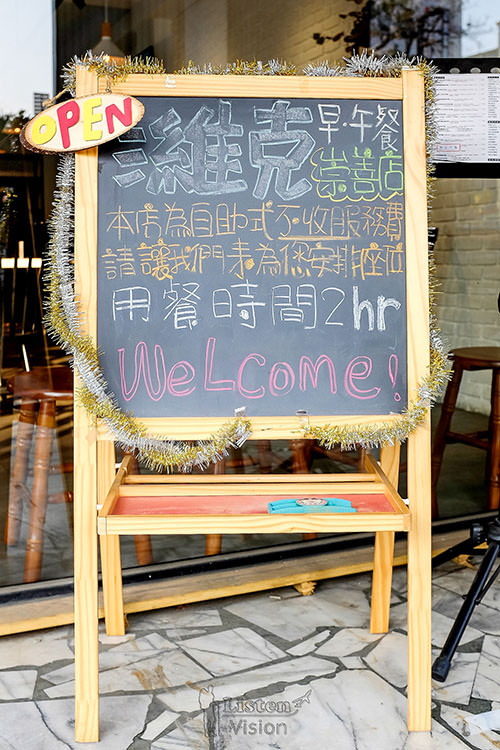 OPEN
濰克
早.午餐
崇善店
本店為自助式不收服務費
請讓我們來為您安排座位
用餐時間2hr
WeLcome!
Listen
Vision